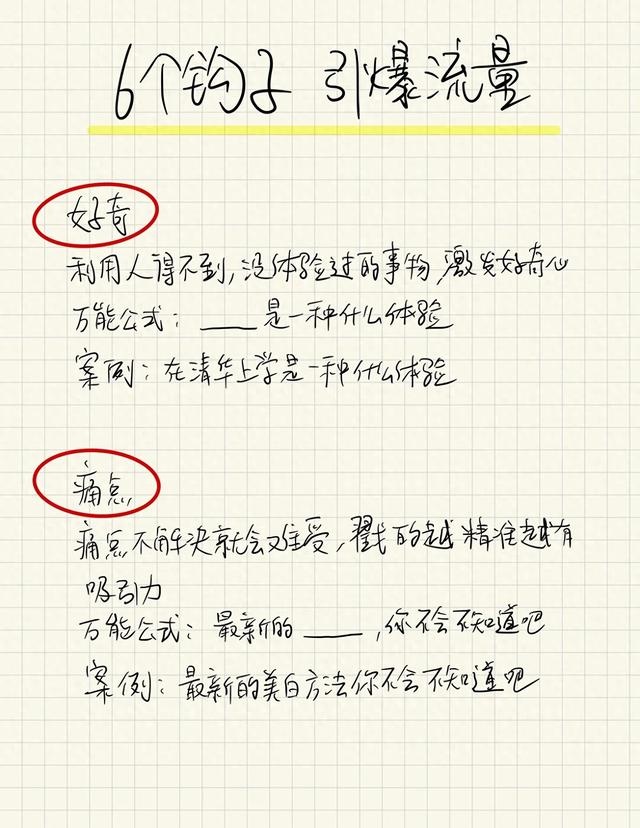 6个钩子 引爆流量
好奇
利用人得不到,没体验过的事物,激发好奇心
万能公式:____是一种什么体验
案例:在清华上学是一种什么体验
痛点
痛点不解决就会难受,戳的越精准越有
吸引力
万能公式:最新的____,你不会不知道吧
案例:最新的美白方法你不会不知道吧